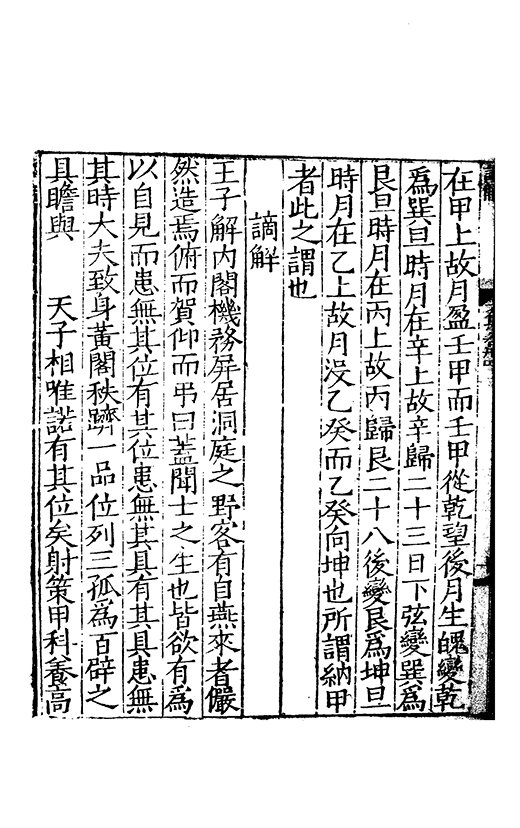 在甲上故月盈壬甲而壬甲從乾望後月生魄變乾
爲巽旦時月在辛上故辛歸二十三日下弦變巽爲
艮旦時月在丙上故丙歸艮二十八後變艮爲坤旦
時月在乙上故月沒乙癸而乙癸向坤也所謂納甲
者此之謂也
謫解
王子解內閣機務屏居洞庭之野客有自燕來者儼
然造焉俯而賀仰而弔曰蓋聞士之生也皆欲有爲
以自見而患無其位有其位患無其具有其具患無
其時大夫致身黃閣秩躋一品位列三孤為百辟之
具瞻與　天子相唯諾有其位矣射策甲科養高